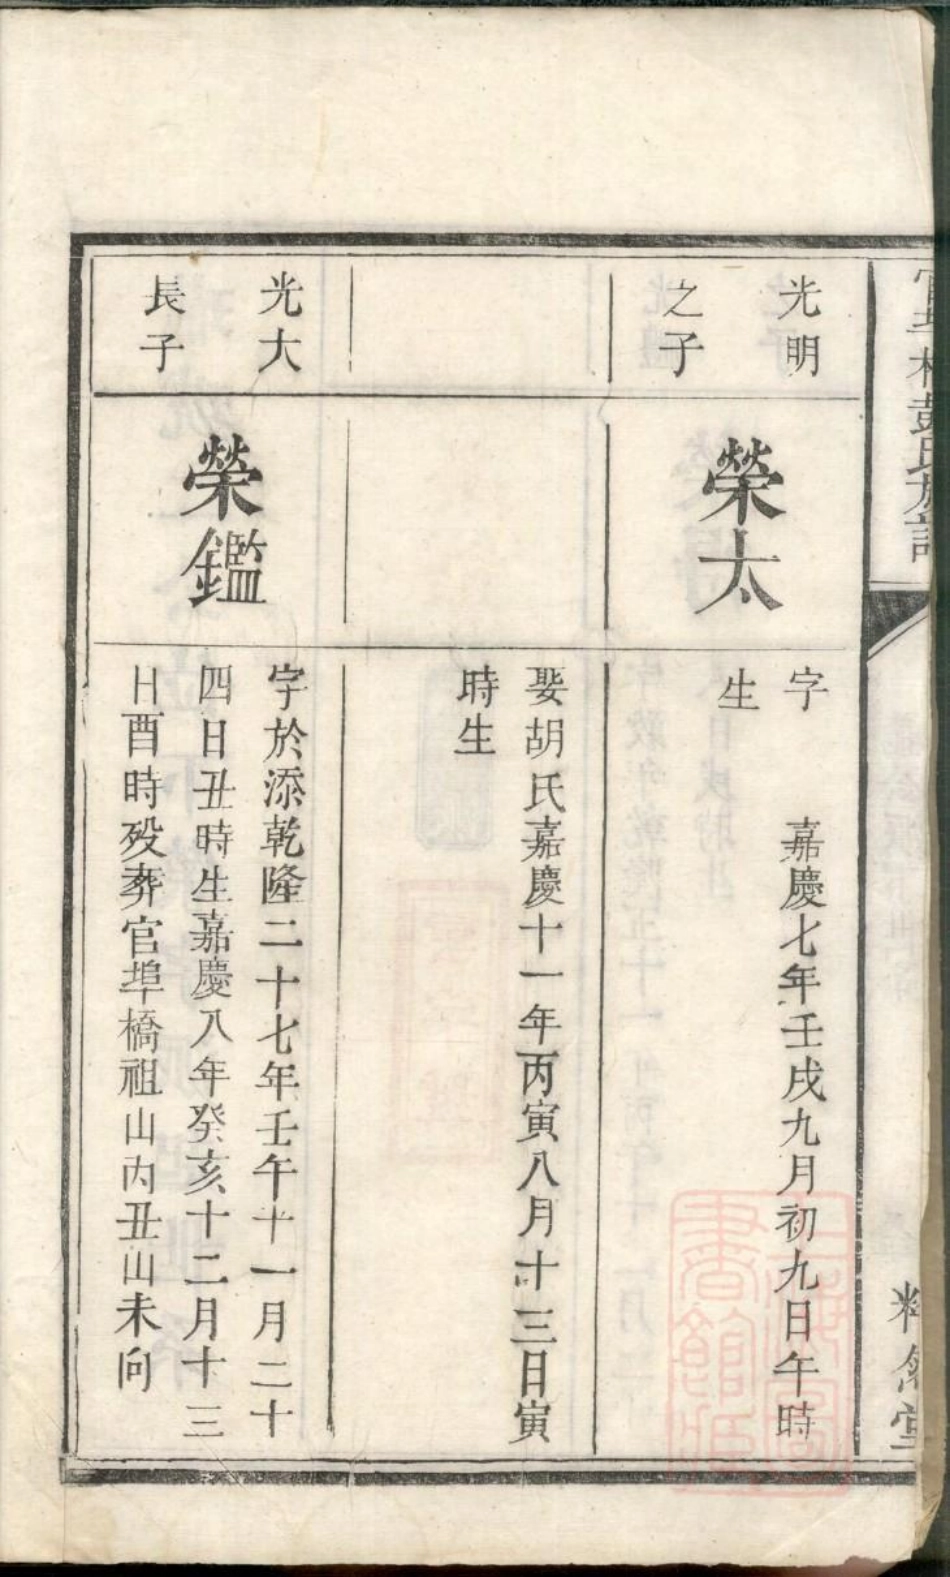 彭氏族譜
光明
之子
榮太
字　嘉慶七年壬戌九月初九日午時
生
娶胡氏嘉慶十一年丙寅八月十三日寅
時生
光大
長子
榮鑑
字於添乾隆二十七年壬午十一月二十
四日丑時生嘉慶八年癸亥十二月十三
日酉時殁葬官埠橋祖山内丑山未向